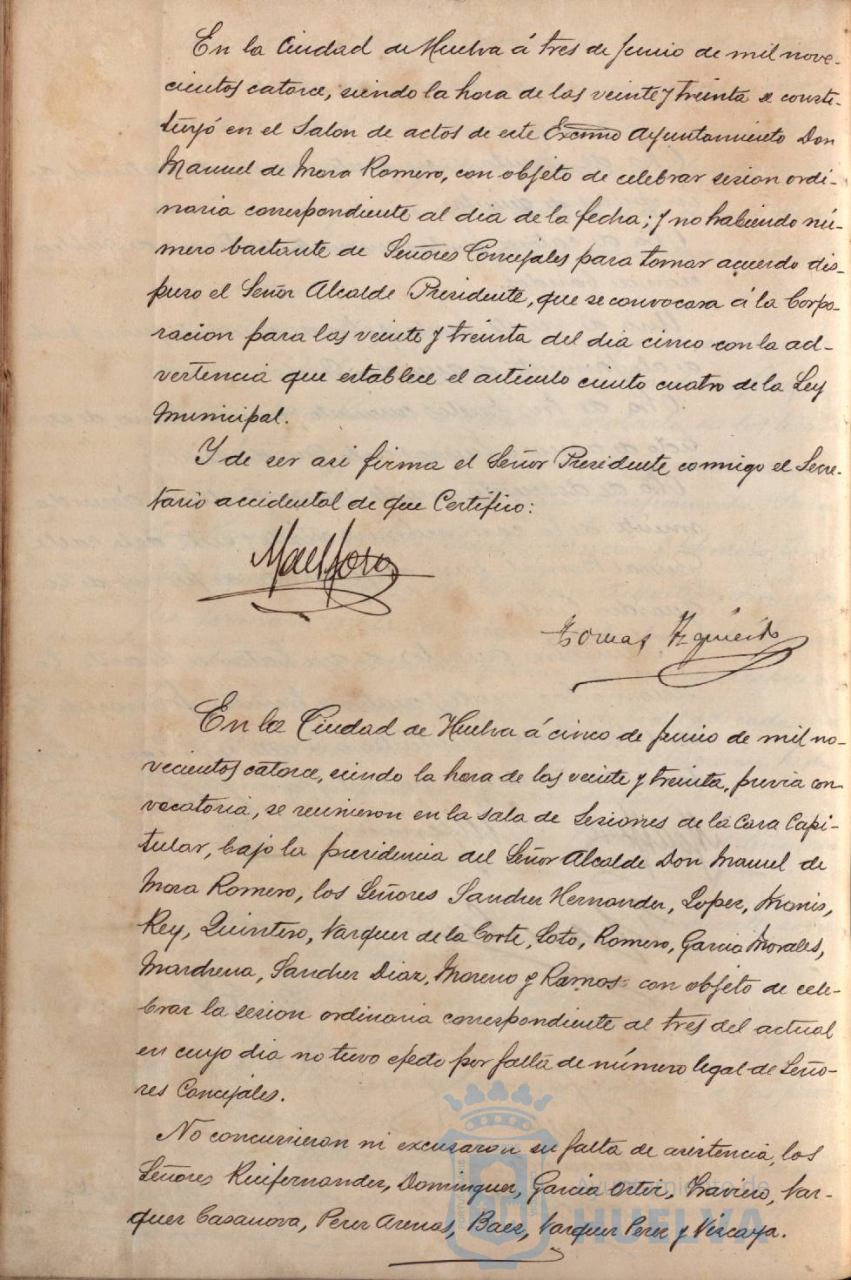 En la Ciudad de Huelva á tres de Junio de mil nove-
cientos catorce, siendo la hora de las veinte y treinta se consti-
tuyó en el Salon de actos de este Excmo Ayuntamiento Don
Manuel de Mora Romero, con objeto de celebrar sesion ordi-
naria correspondiente al dia de la fecha; y no habiendo nú-
mero bastante de Señores Concejales para tomar acuerdo dis-
puso el Señor Alcalde Presidente, que se convocara á la Corpo-
racion para las veinte y treinta del dia cinco con la ad-
vertencia que establece el articulo ciento cuatro de la Ley
Municipal.
Y de ser asi firma el Señor Presidente conmigo el Secre-
tario accidental de que Certifico:
Tomas
En la Ciudad de Huelva á cinco de Junio de mil no-
vecientos catorce, siendo la hora de las veinte y treinta, previa con-
vocatoria, se reunieron en la sala de Sesiones de la Casa Capi-
tular, bajo la presidencia del Señor Alcalde Don Manuel de
Mora Romero, los Señores Sanchez Hernandez, Lopez, Monis,
Rey, Quintero, Vazquez de la Corte, Soto, Romero, Garcia Morales,
Mardrena, Sanchez Diaz, Moreno y Ramos con objeto de cele-
brar la sesion ordinaria correspondiente al tres del actual
en cuyo dia no tuvo efecto por falta de número legal de Seño-
res Concejales.
No concurrieron ni excusaron su falta de asistencia, los
Señores Ruifernandez, Dominguez, Garcia Ortiz, Vaz-
quez Casanova, Perez Arenas, Baez, Vazquez Perez y Vizcaya.
Ayuntamiento de
HUELVA